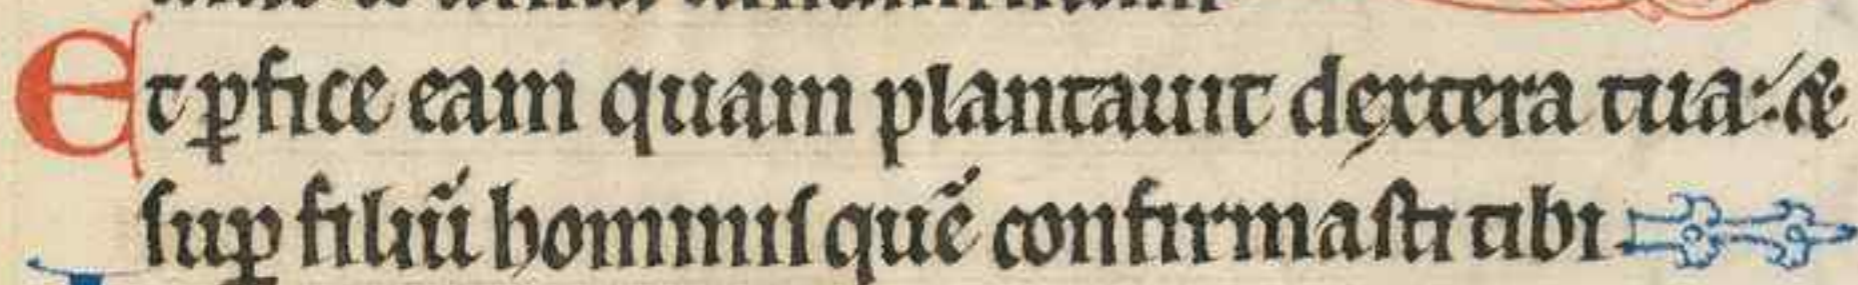 Et ꝑfice eam quam plantauit dextera tua: &
ſuꝑ filiū hominiſ quē confirmaſti tibi